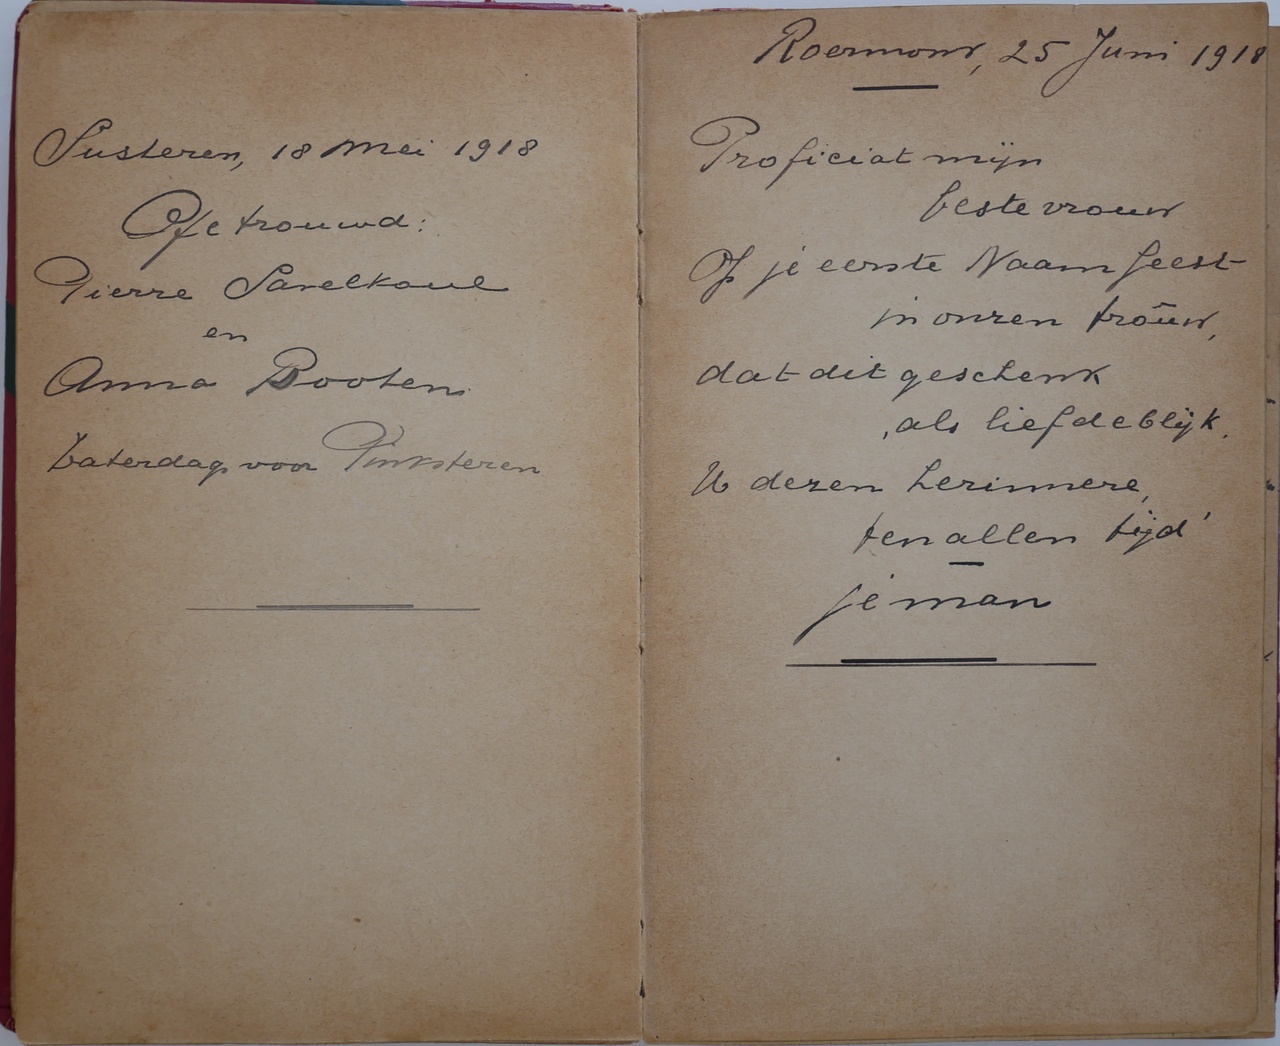 Susteren, 18 Mei 1918
Getrouwd:
Pierre Sarelkoul
en
Anna Booten
Zaterdag voor Pinksteren
Roermond, 25 Juni 1918
Proficiat mijn
beste vrouw
Op je eerste Naamfeest
in onzen trouw,
dat dit geschenk
als liefdeblijk.
U dezen herinnere,
ten allen tijd
je man